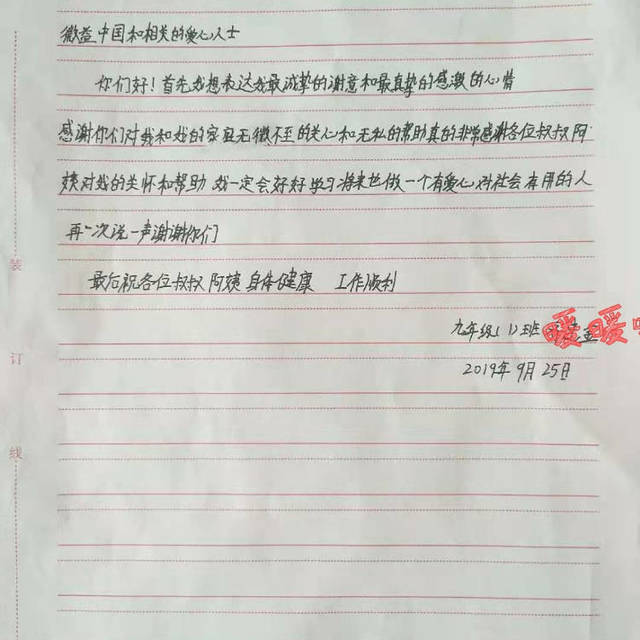 微益中国和相关的爱心人士
你们好！首先我想表达我最诚挚的谢意和最真挚的感激的心情
感谢你们对我和我的家庭无微不至的关心和无私的帮助真的非常感谢各位叔叔阿
姨对我的关怀和帮助 我一定会好好学习将来也做一个有爱心对社会有用的人
再一次说一声谢谢你们
最后祝各位叔叔阿姨身体健康 工作顺利
九年级(1)班
暖暖
2019年9月25日
装
订
线